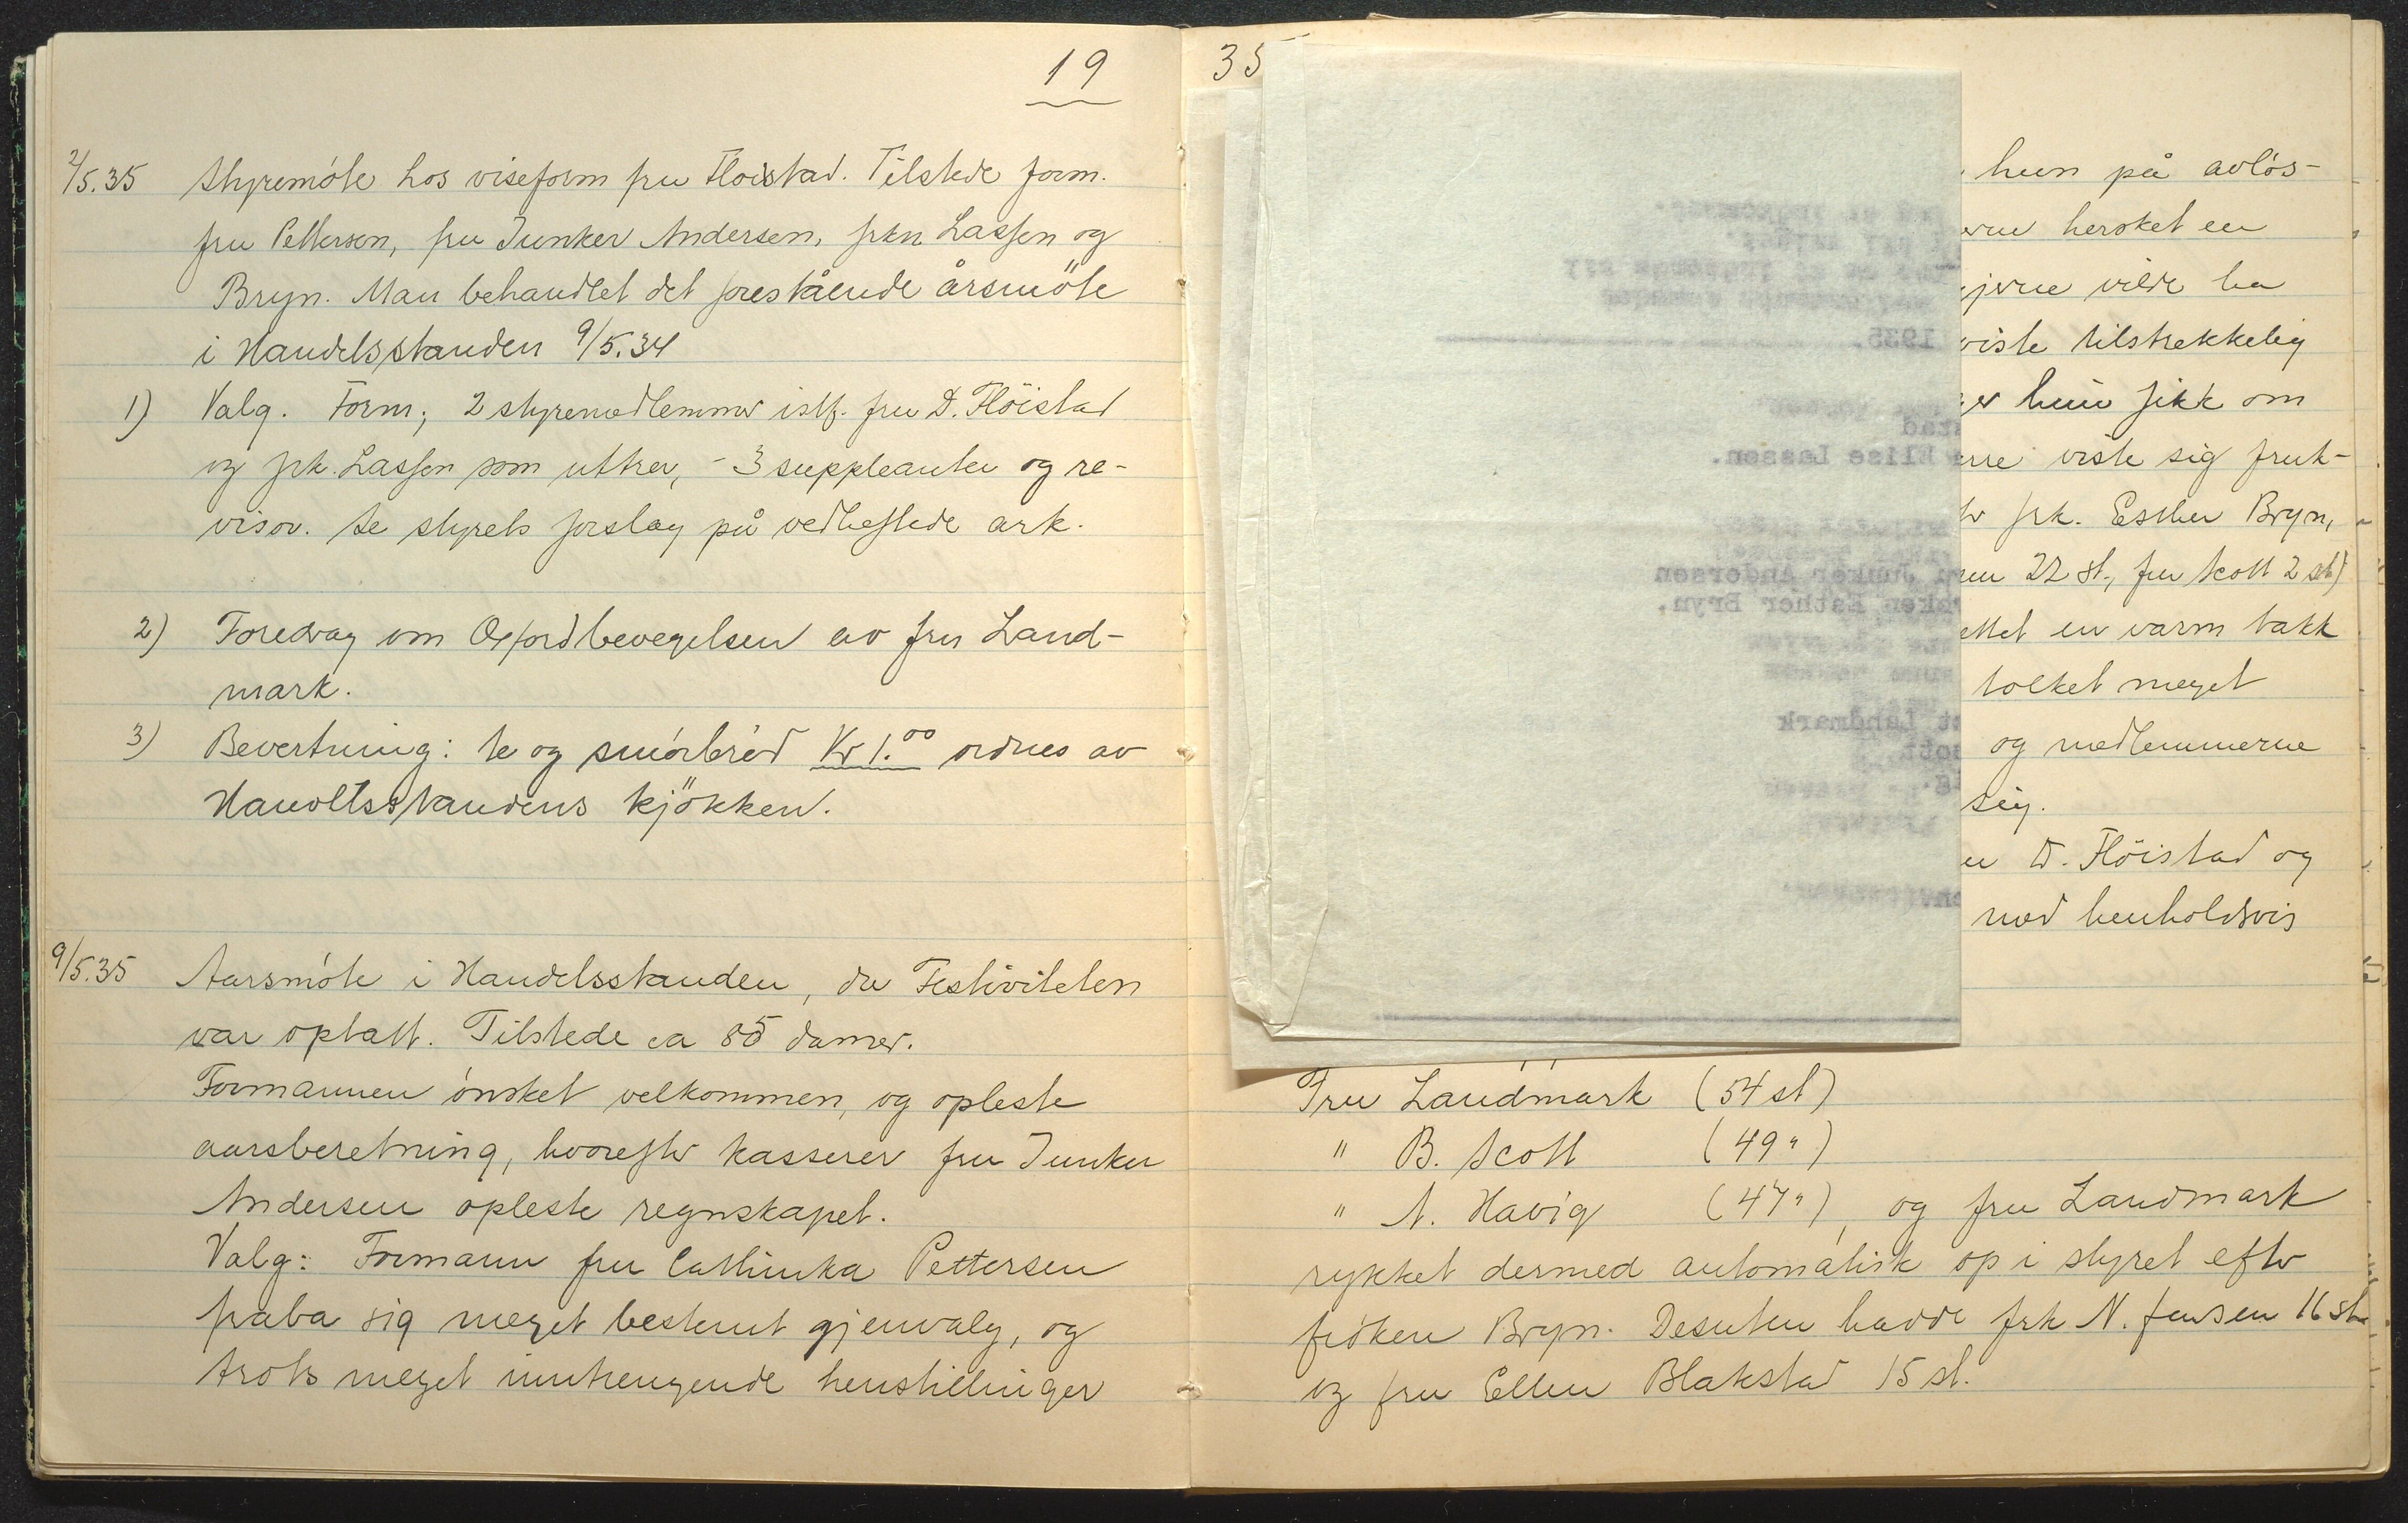 19
2/5.35 Styremöte hos viseform fru Floistad. Tilstede form.
fru Pettersen, fru Junker Andersen, frkn Lassen og
Bryn. Man behandlet det forestående årsmöte
i Handelsstanden 9/5.34
1) Valg. Form; 2 styremedlemmer istf. fru D. Flöistad
og frk. Lassen som uttrer, - 3 suppleanter og re-
visor. Se styrets forslag på vedheftede ark.
2) Foredrag om Oxfordbevegelsen av fru Land-
mark.
3) Bevertning: te og smörbröd Kr 1.00 ordnes av
Handelsstandens kjökken.
9/5.35 Aarsmöte i Handelsstanden, da Festiviteten
var optatt. Tilstede ca 85 damer.
Formannen önsket velkommen, og opleste
aarsberetning, hvorefter kasserer fru Junker
Andersen opleste regnskapet.
Valg: Formann fru Cathinka Pettersen
fraba sig meget bestemt gjenvalg, og
trots meget inntrengende henstillinger
35
hun på avlös-
erne hersket en
gjerne vilde ha
viste tilstrekkelig
er hun fikk om
erne viste sig frukt-
frk. Esther Bryn,
22 st., fru Scott 2 st)
en varm takk
tolket meget
og medlemmerne
sig.
D. Flöistad og
med henholdsvis
1935.
Elise Lassen.
Junker Andersen
Esther Bryn,
Landmark
Fru Landmark (54 st)
" B. Scott (49 ")
" A. Havig (47 "), og fru Landmark
rykket dermed automatisk op i styret efter
fröken Bryn. Desuten hadde frk N. Jensen 16 st.
og fru Ellen Blakstad 15 st.